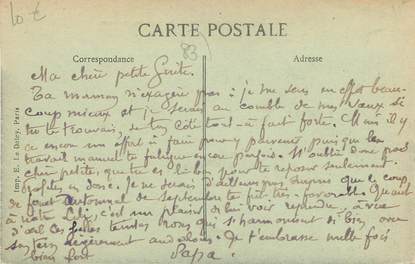 10 €
CARTE POSTALE
83
Correspondance
Adresse
Ma chère petite Ginette.
Ta maman n'exagère pas : je me sens en effet beau-
coup mieux et je serais au comble de mes vœux si
tu te trouvais, de ton côté tout-à-fait forte. Mais il y
a encore un effort à faire pour y parvenir puisque le
travail manuel te fatigue encore parfois. N'oublie donc pas
chère petite, que tu es là-bas pour te reposer seulement.
profites en donc. Je ne serais d'ailleurs pas surpris que le coup
de fouet automnal de septembre te fût très favorable. Quant
à notre Lili, c'est un plaisir de lui voir reprendre, à vue
d'œil ces belles teintes roses qui s'harmonisent si bien avec
son teint légèrement
Je t'embrasse mille fois
bien fort
Papa.
Imp. E. Le Deley, Paris